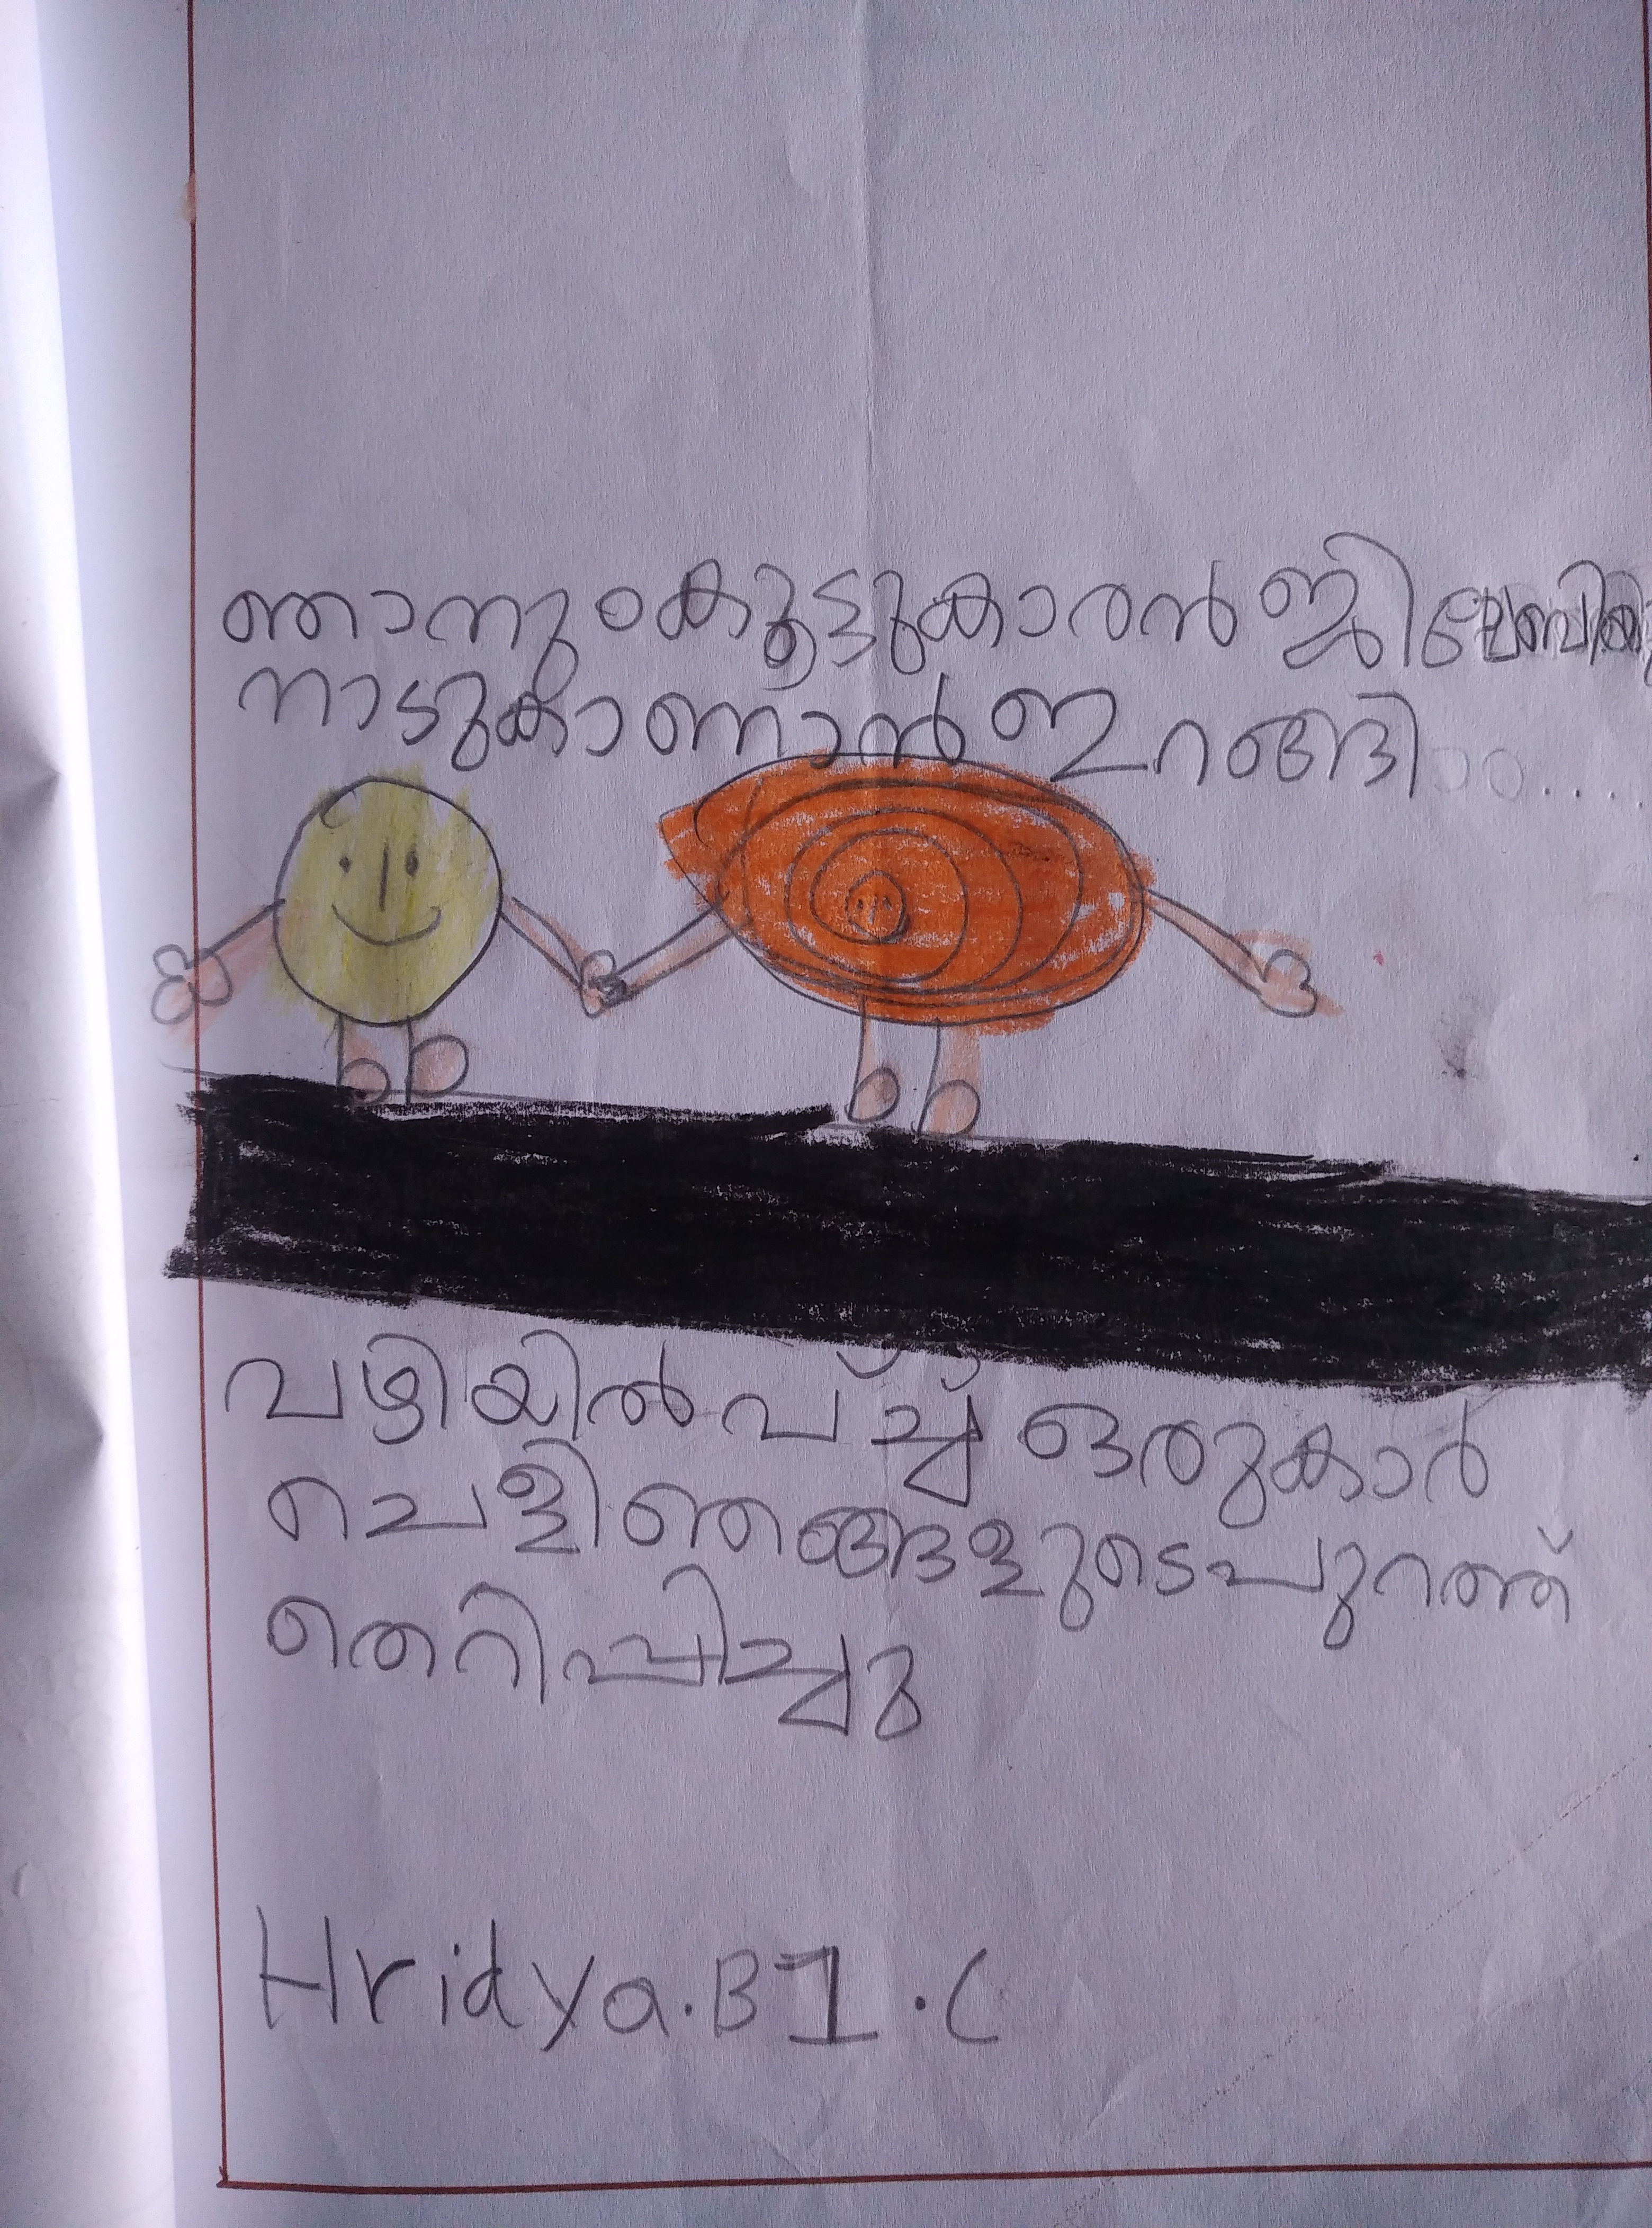 ഞാനും കൂട്ടുകാരൻ ജിലേബിയും
നാടുകാണാൻ ഇറങ്ങി.....
വഴിയിൽ വ്ച്ച് ഒരുകാർ
ചെളിഞങ്ങളുടെപുറത്ത്
തെറിപ്പിച്ചു
Hridya.B 1.C